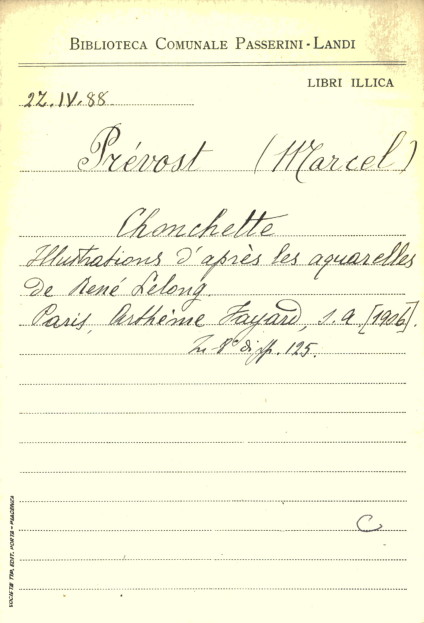 BIBLIOTECA COMUNALE PASSERINI-LANDI
LIBRI ILLICA
2Z.IV.88
Prévost (Marcel)
Chonchette
Illustrations d'après les aquarelles
de René Lelong.
Paris, Arthème Fayard, s.a. [1906].
In 8° di pp. 125.
C